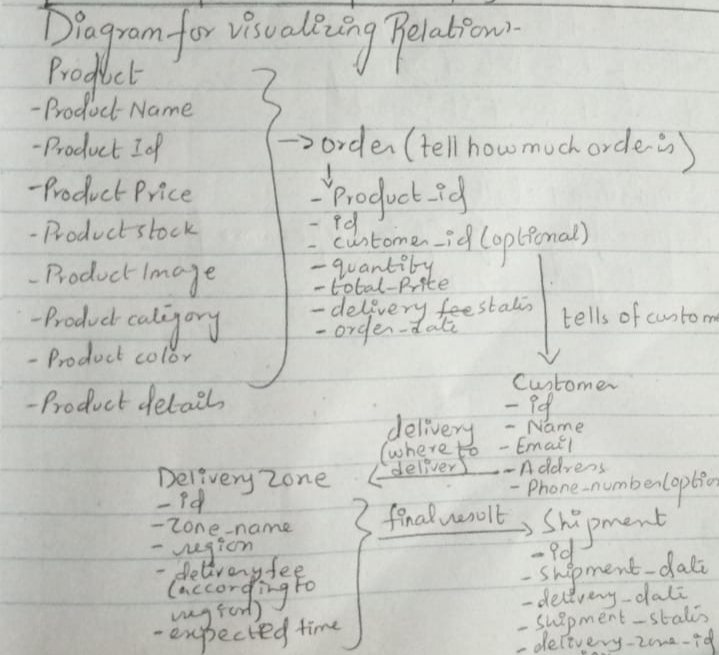 Diagram for visualizing Relations-
Product
- Product Name
- Product Id
- Product Price
- Product stock
- Product Image
- Product category
- Product color
- Product details
→ order (tell how much order is)
- Product_id
- id
- customer_id (optional)
- quantity
- total-Price
- delivery fee status
- order-date
tells of custom
Customer
- id
- Name
- Email
- Address
- Phone-number(optio
delivery
(where to
deliver)
Delivery Zone
- id
- zone_name
- region
- delivery fee
(according to
region)
- expected time
final result
Shipment
- id
- shipment_date
- delivery_date
- shipment_status
- delivery-zone-id